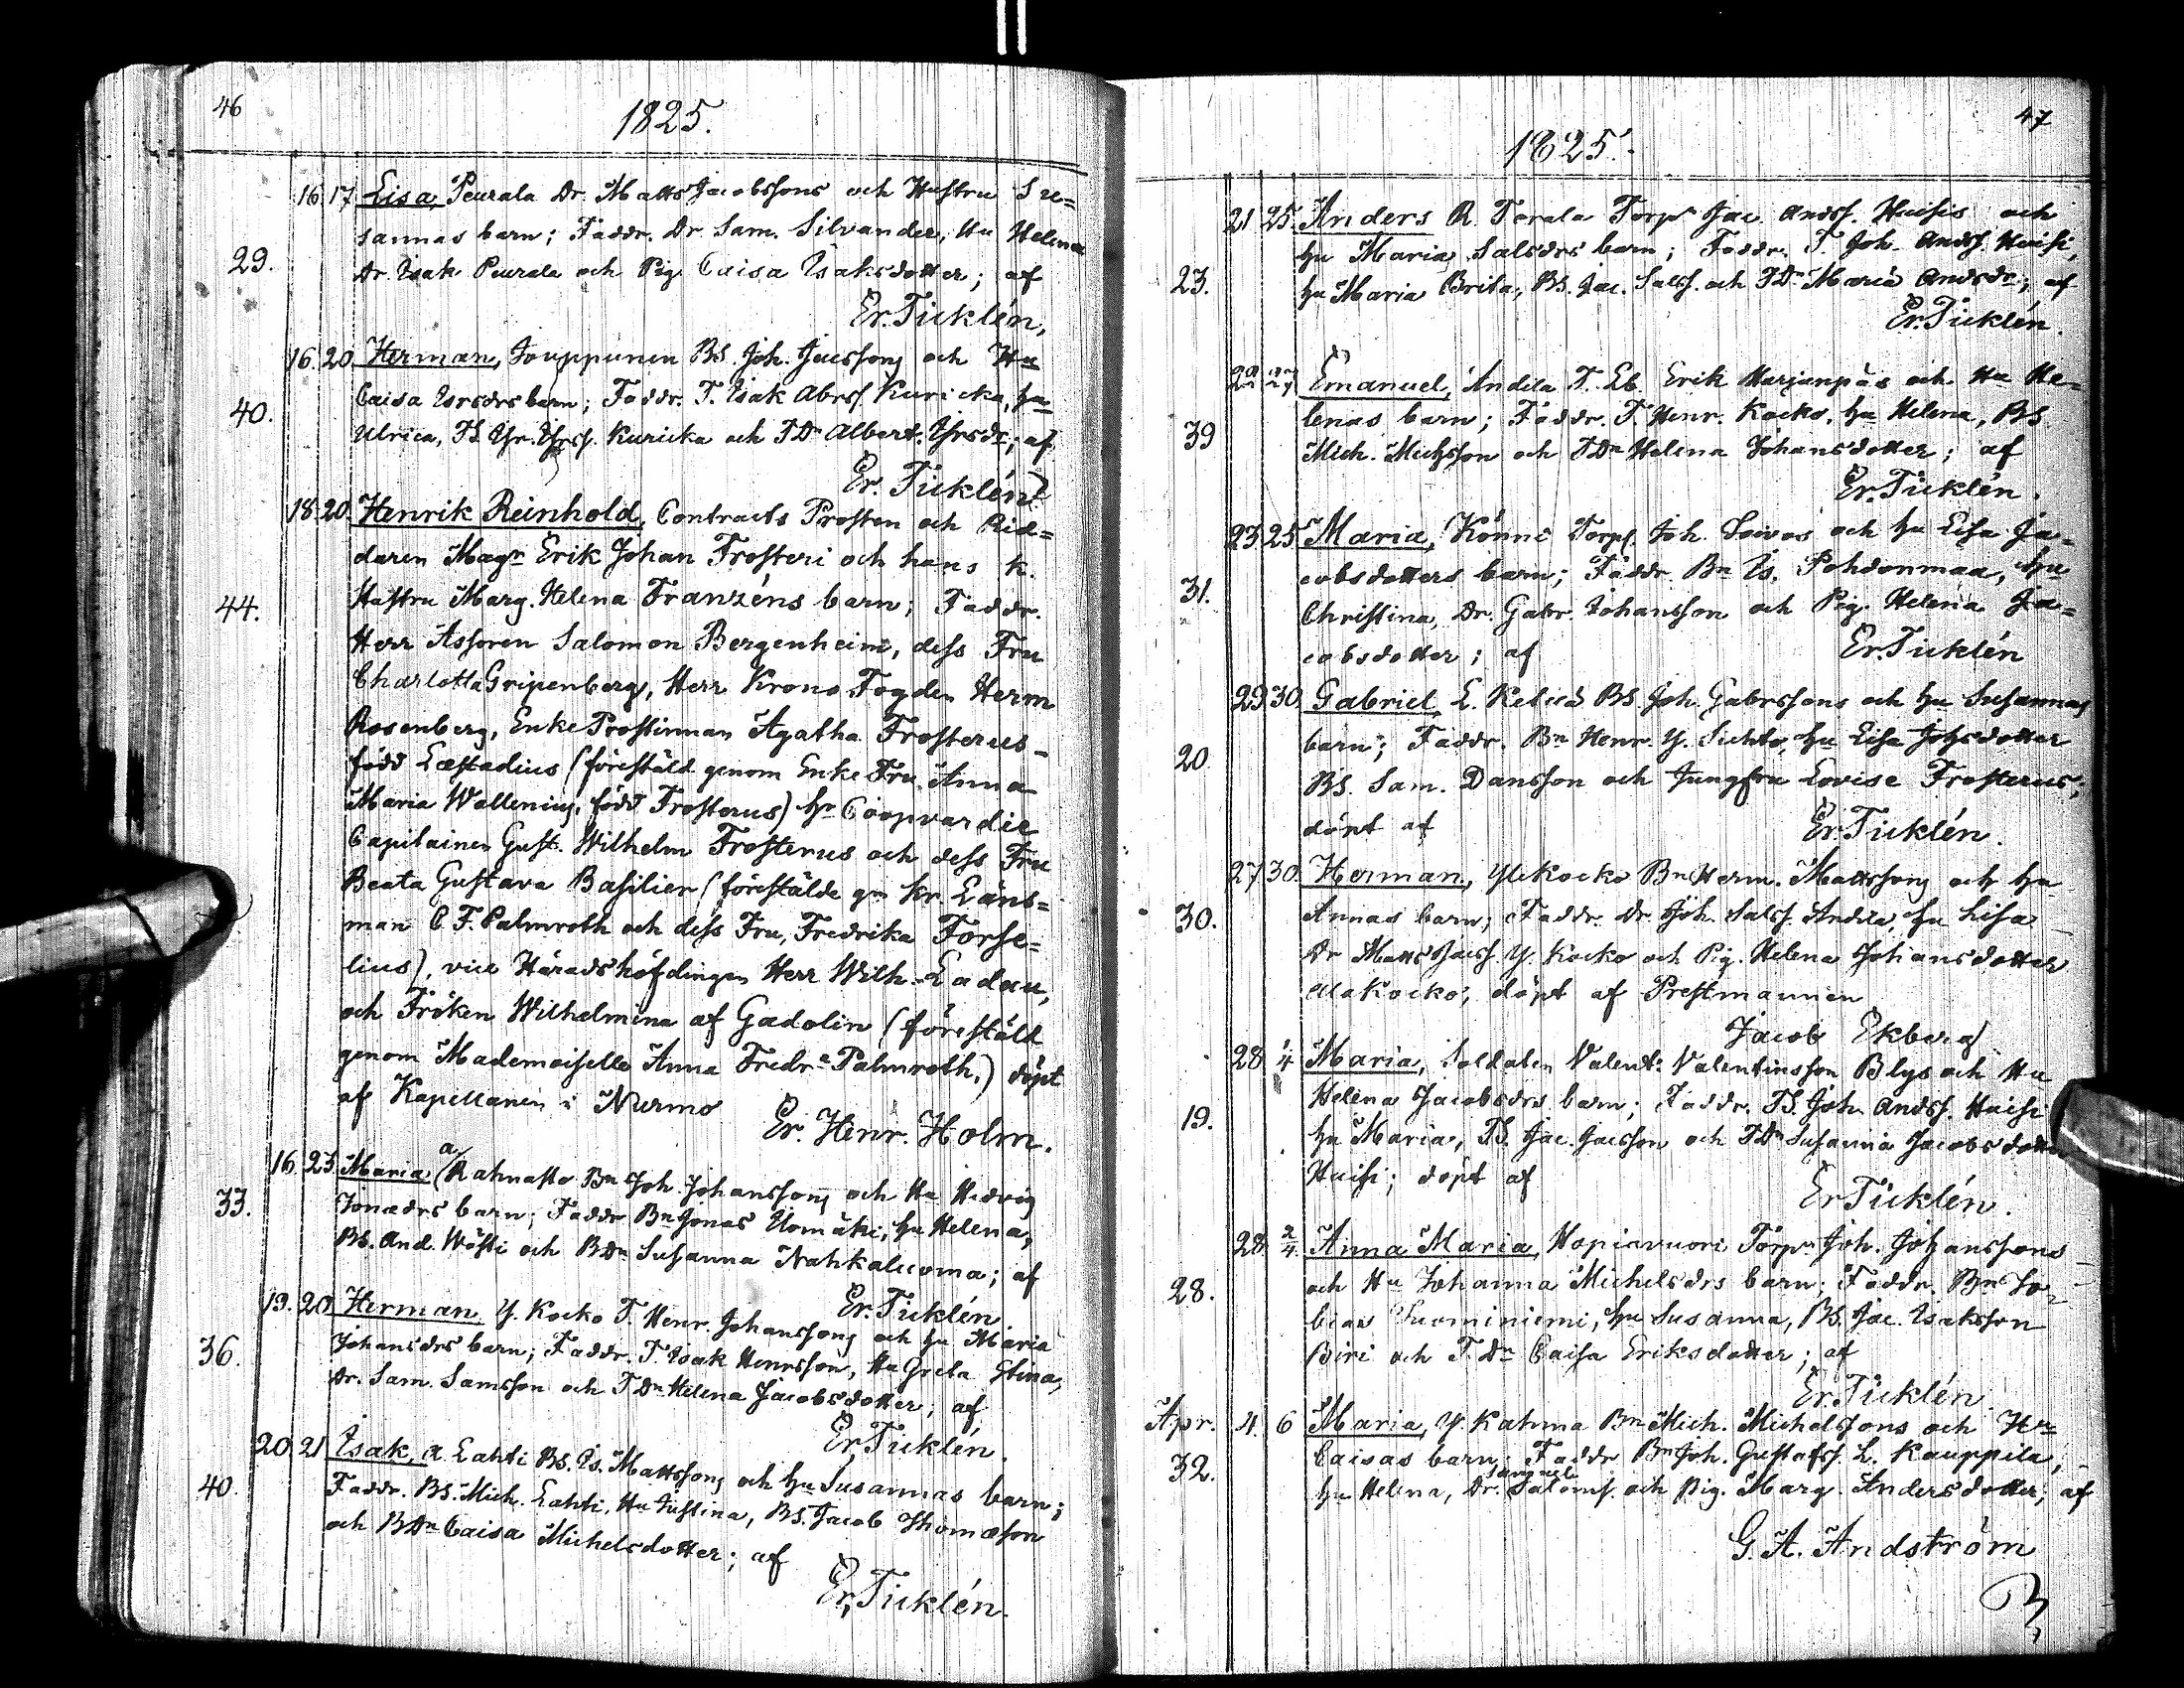 46
1825.
16. 17. Lisa, Peurala Dr. Matts Jacobssons och Hustru Su=
29. sannas barn; Faddr. Dr. Sam. Silvander, Hu Helena
Dr. Isak Peurala och Pig. Caisa Isaksdotter; af
Er. Ticklén,
16. 20. Herman, Jouppunen BS. Joh. Jacssons och Hu
40. Caisa Isrsdrs barn; Faddr. T. Isak Abrss. Kuricka, hu
Ulrica, TS. Yr. Yrss. Kuricka och TDr Albert. Yrsdr; af
Er. Ticklén.
18. 20. Henrik Reinhold, Contracts Prosten och Rid=
daren Magr Erik Johan Frosteri och hans k.
44. Hustru Marg. Helena Franzéns barn; Faddr.
Herr Assoren Salomon Bergenheim, dess Fru
Charlotta Gripenberg, Herr Krono Fogden Herm
Rosenberg, Enke Prostinnan Agatha Frosterus
född Læstadius (förestäld genom Enke Fru Anna
Maria Wallenius, född Frosterus) Hr Coopvardie
Capitainen Gust. Wilhelm Frosterus och dess Fru
Beata Gustava Basilier (förestälde gm kr. Läns=
man C. F. Palmroth och dess Fru, Fredrika Forse=
lius), vice Häradshöfdingen Herr Wilh. Ladau,
och Fröken Wilhelmina af Gadolin (förestäld
genom Mademoiselle Anna Fredr. Palmroth,) döpt
af Kapellanen i Nurmo
Er. Henr. Holm.
16. 23. Maria, a Rahnasto Bn Joh. Johanssons och Hu Hedvig
33. Jonædrs barn; Faddr Bn Jonas Ilomäki, hu Helena,
BS. And. Wästi och BDr Susanna Nahkaluoma; af
Er. Ticklén.
19. 20. Herman, Y. Kocko T. Henr. Johanssons och hu Maria
36. Johansdrs barn; Faddr. T. Isak Henrsson, Hu Greta Stina,
Dr. Sam. Samsson och TDr Helena Jacobsdotter; af
Er. Ticklén.
20. 21. Isak, a. Lahti BS. Is. Mattssons och hu Susannas barn;
40. Faddr. BS. Mich. Lahti, Hu Justina, BS. Jacob Thomæson
och BDr Caisa Michelsdotter; af
Er. Ticklén.
47
1825.
21. 25. Anders R. Torala Torpr Jac. Andss. Huisis och
hu Maria Salsdrs barn; Faddr. T. Joh. Andss. Huisi,
23. hu Maria Brita, BS. Jac. Salss. och TDr Maria Andsdr; af
Er. Ticklén.
22 27 Emanuel, Andila T. Eb. Erik Harjanpäs och Hu He=
lenas barn; Faddr. T. Henr. Kocko, hu Helena, BS
39 Mich. Michsson och TDr Helena Johansdotter; af
Er. Ticklén.
23. 25. Maria, Könni Torps. Joh. Loivos och hu Lisa Ja=
cobsdotters barn; Faddr. Bn Is. Pohdonmaa, hu
31. Christina, Dr. Gabr. Johansson och Pig. Helena Ja=
cobsdotter; af
Er. Ticklén
29. 30. Gabriel, L. Ketua BS. Joh. Gabrssons och hu Susannas
barn; Faddr. Bn Henr. Y. Sichto, hu Lisa Johsdotter
20. BS. Sam. Dansson och Jungfru Lovise Frosterus;
döpt af
Er. Ticklén.
27. 30. Herman, Ylikocko Bn Herm. Mattssons och hu
30. Annas barn; Faddr. Dr. Joh. Salss. Andila, hu Lisa
Dr Matts Jacss. Y. Kocko och Pig. Helena Johansdotter
Alakocko, döpt af Prestmannen
Jacob Ekberg
28. 4 Maria, Soldaten Valent. Valentinsson Blys och Hu
Helena Jacobsdrs barn; Faddr. TS. Joh. Andss. Huisi
19. hu Maria, TS. Jac. Jacsson och TDr Susanna Jacobsdotter
Huisi; döpt af
Er. Ticklén.
28. 2/4. Anna Maria, Hopiavuori Torpr Joh. Johanssons
28. och Hu Johanna Michelsdrs barn; Faddr. Bn To=
bias Luominiemi, hu Susanna, BS. Jac. Isaksson
Biri och T. Dr Caisa Eriksdotter; af
Er. Ticklén.
Apr. 4. 6 Maria, Y. Kahma Bn Mich. Michelsons och Hu
32. Caisas barn; Faddr Bn Joh. Gustafss. L. Kauppila,
Samuel
hu Helena, Dr. Saloms. och Pig. Marg. Andersdotter; af
G. A. Andström